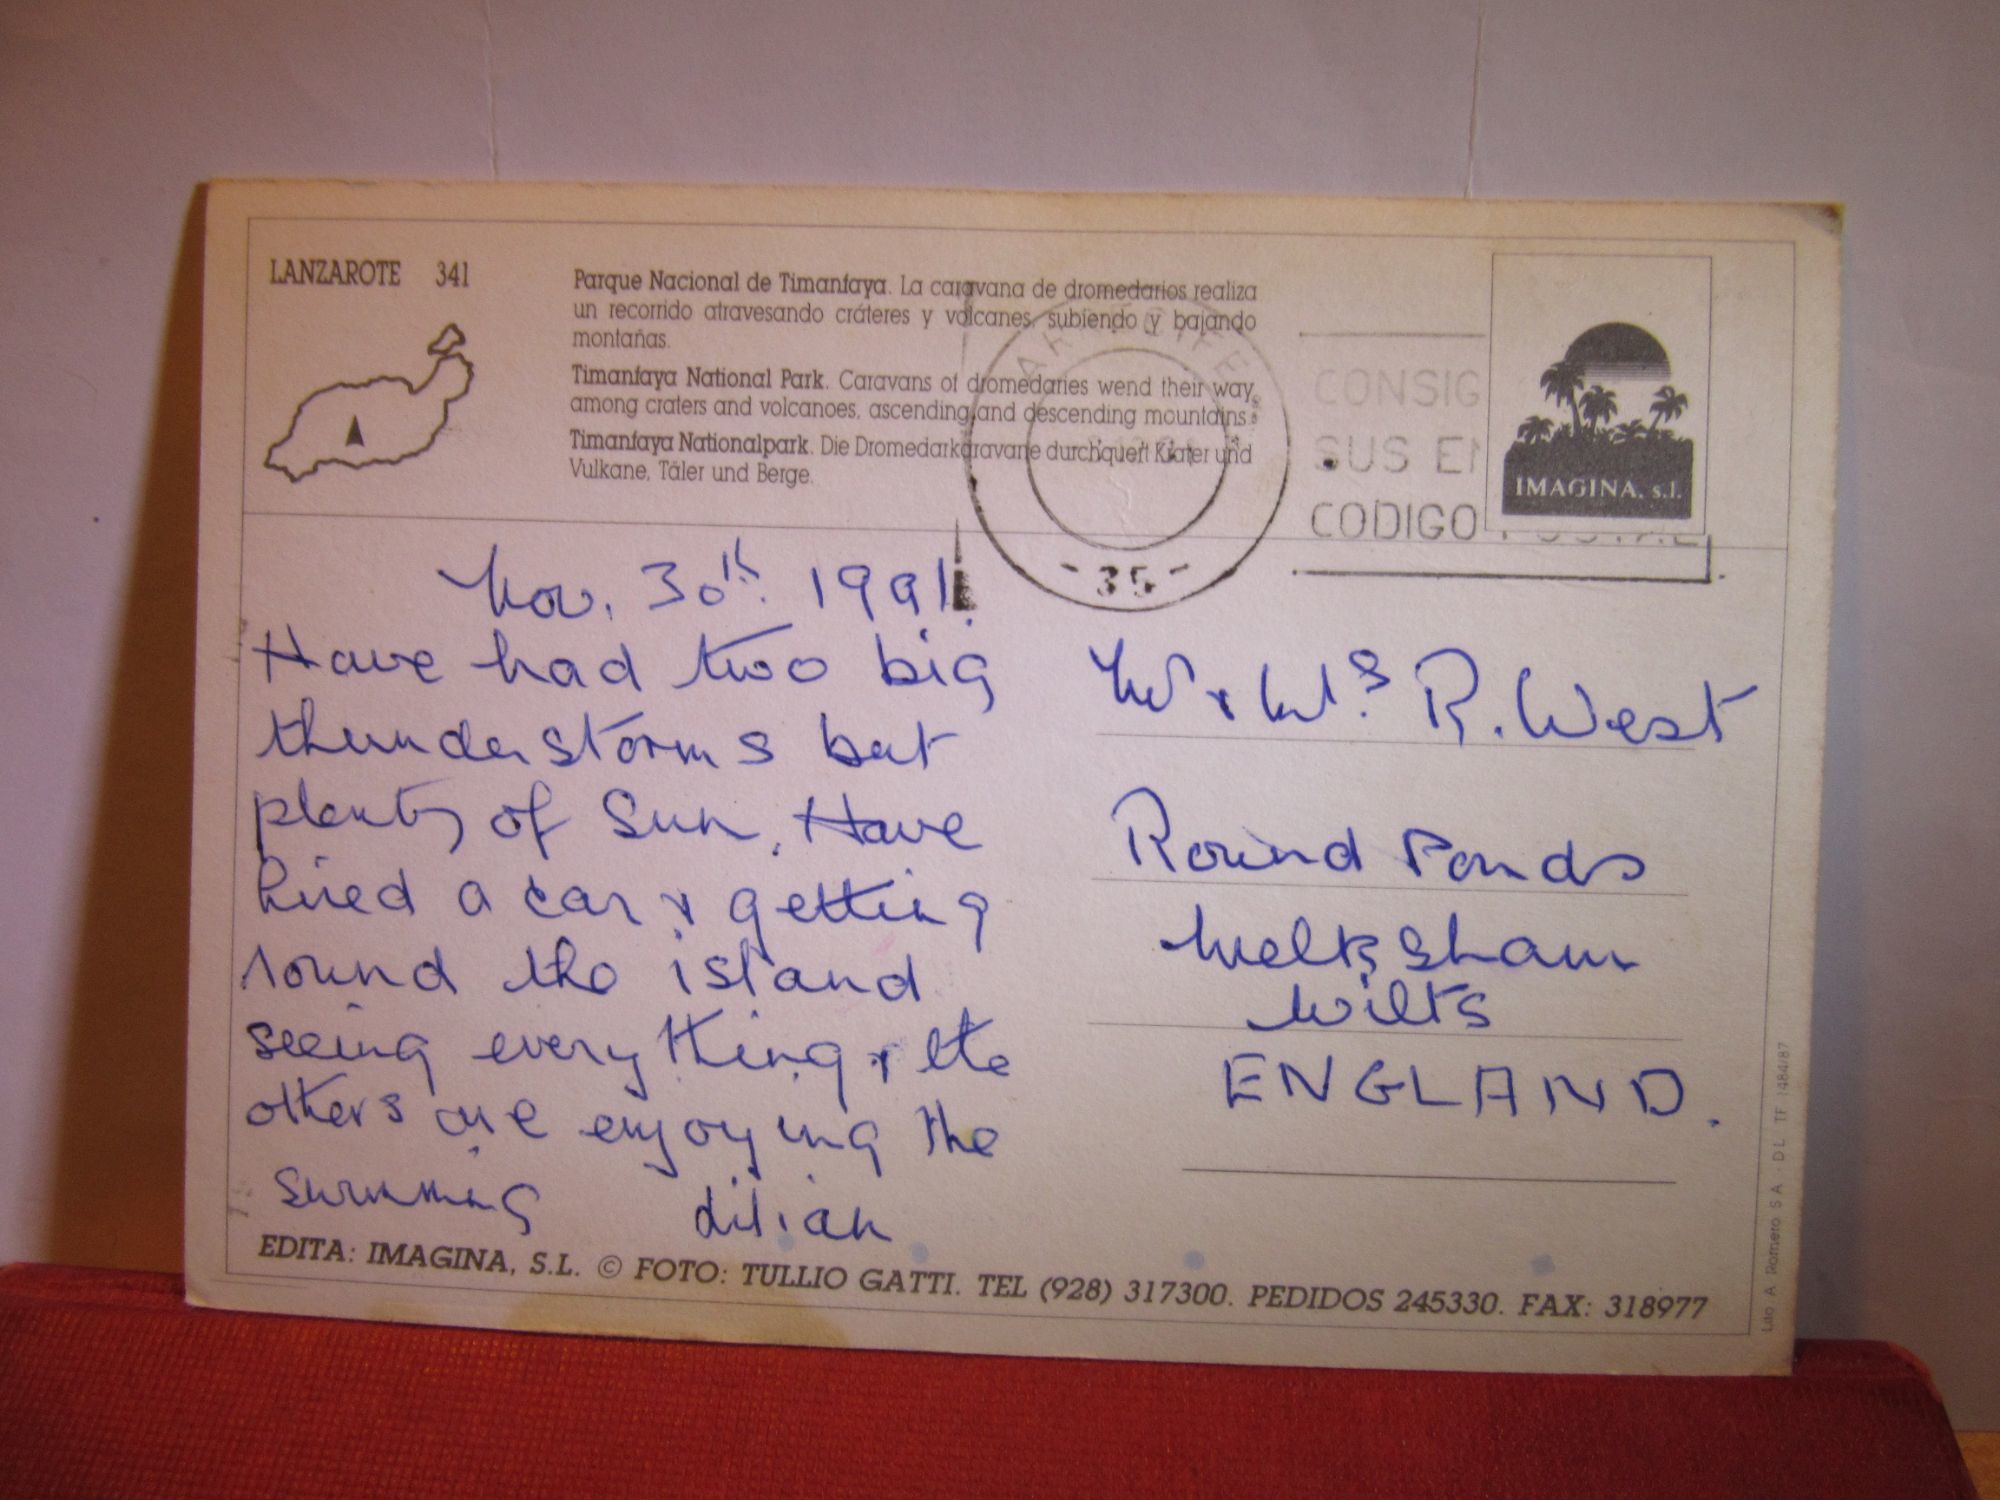 LANZAROTE 341
Parque Nacional de Timanfaya. La caravana de dromedarios realiza
un recorrido atravesando cráteres y volcanes, subiendo y bajando
montañas.
Timanfaya National Park. Caravans of dromedaries wend their way,
among craters and volcanoes, ascending and descending mountains.
Timanfaya Nationalpark. Die Dromedarkaravane durchquert Krater und
Vulkane, Täler und Berge.
35
CONSIG
SUS EN
CODIGO POSTAL
IMAGINA, s.l.
Nov. 30th. 1991.
Have had two big
thunderstorms but
plenty of Sun. Have
hired a car & getting
round the island
seeing everything & the
others are enjoying the
swimming Lilian
Mr & Mrs. R. West
Round Ponds
Melksham
Wilts
ENGLAND.
EDITA: IMAGINA, S.L. © FOTO: TULLIO GATTI. TEL (928) 317300. PEDIDOS 245330. FAX: 318977
Lito A Romero S A · D L TF 1484/87